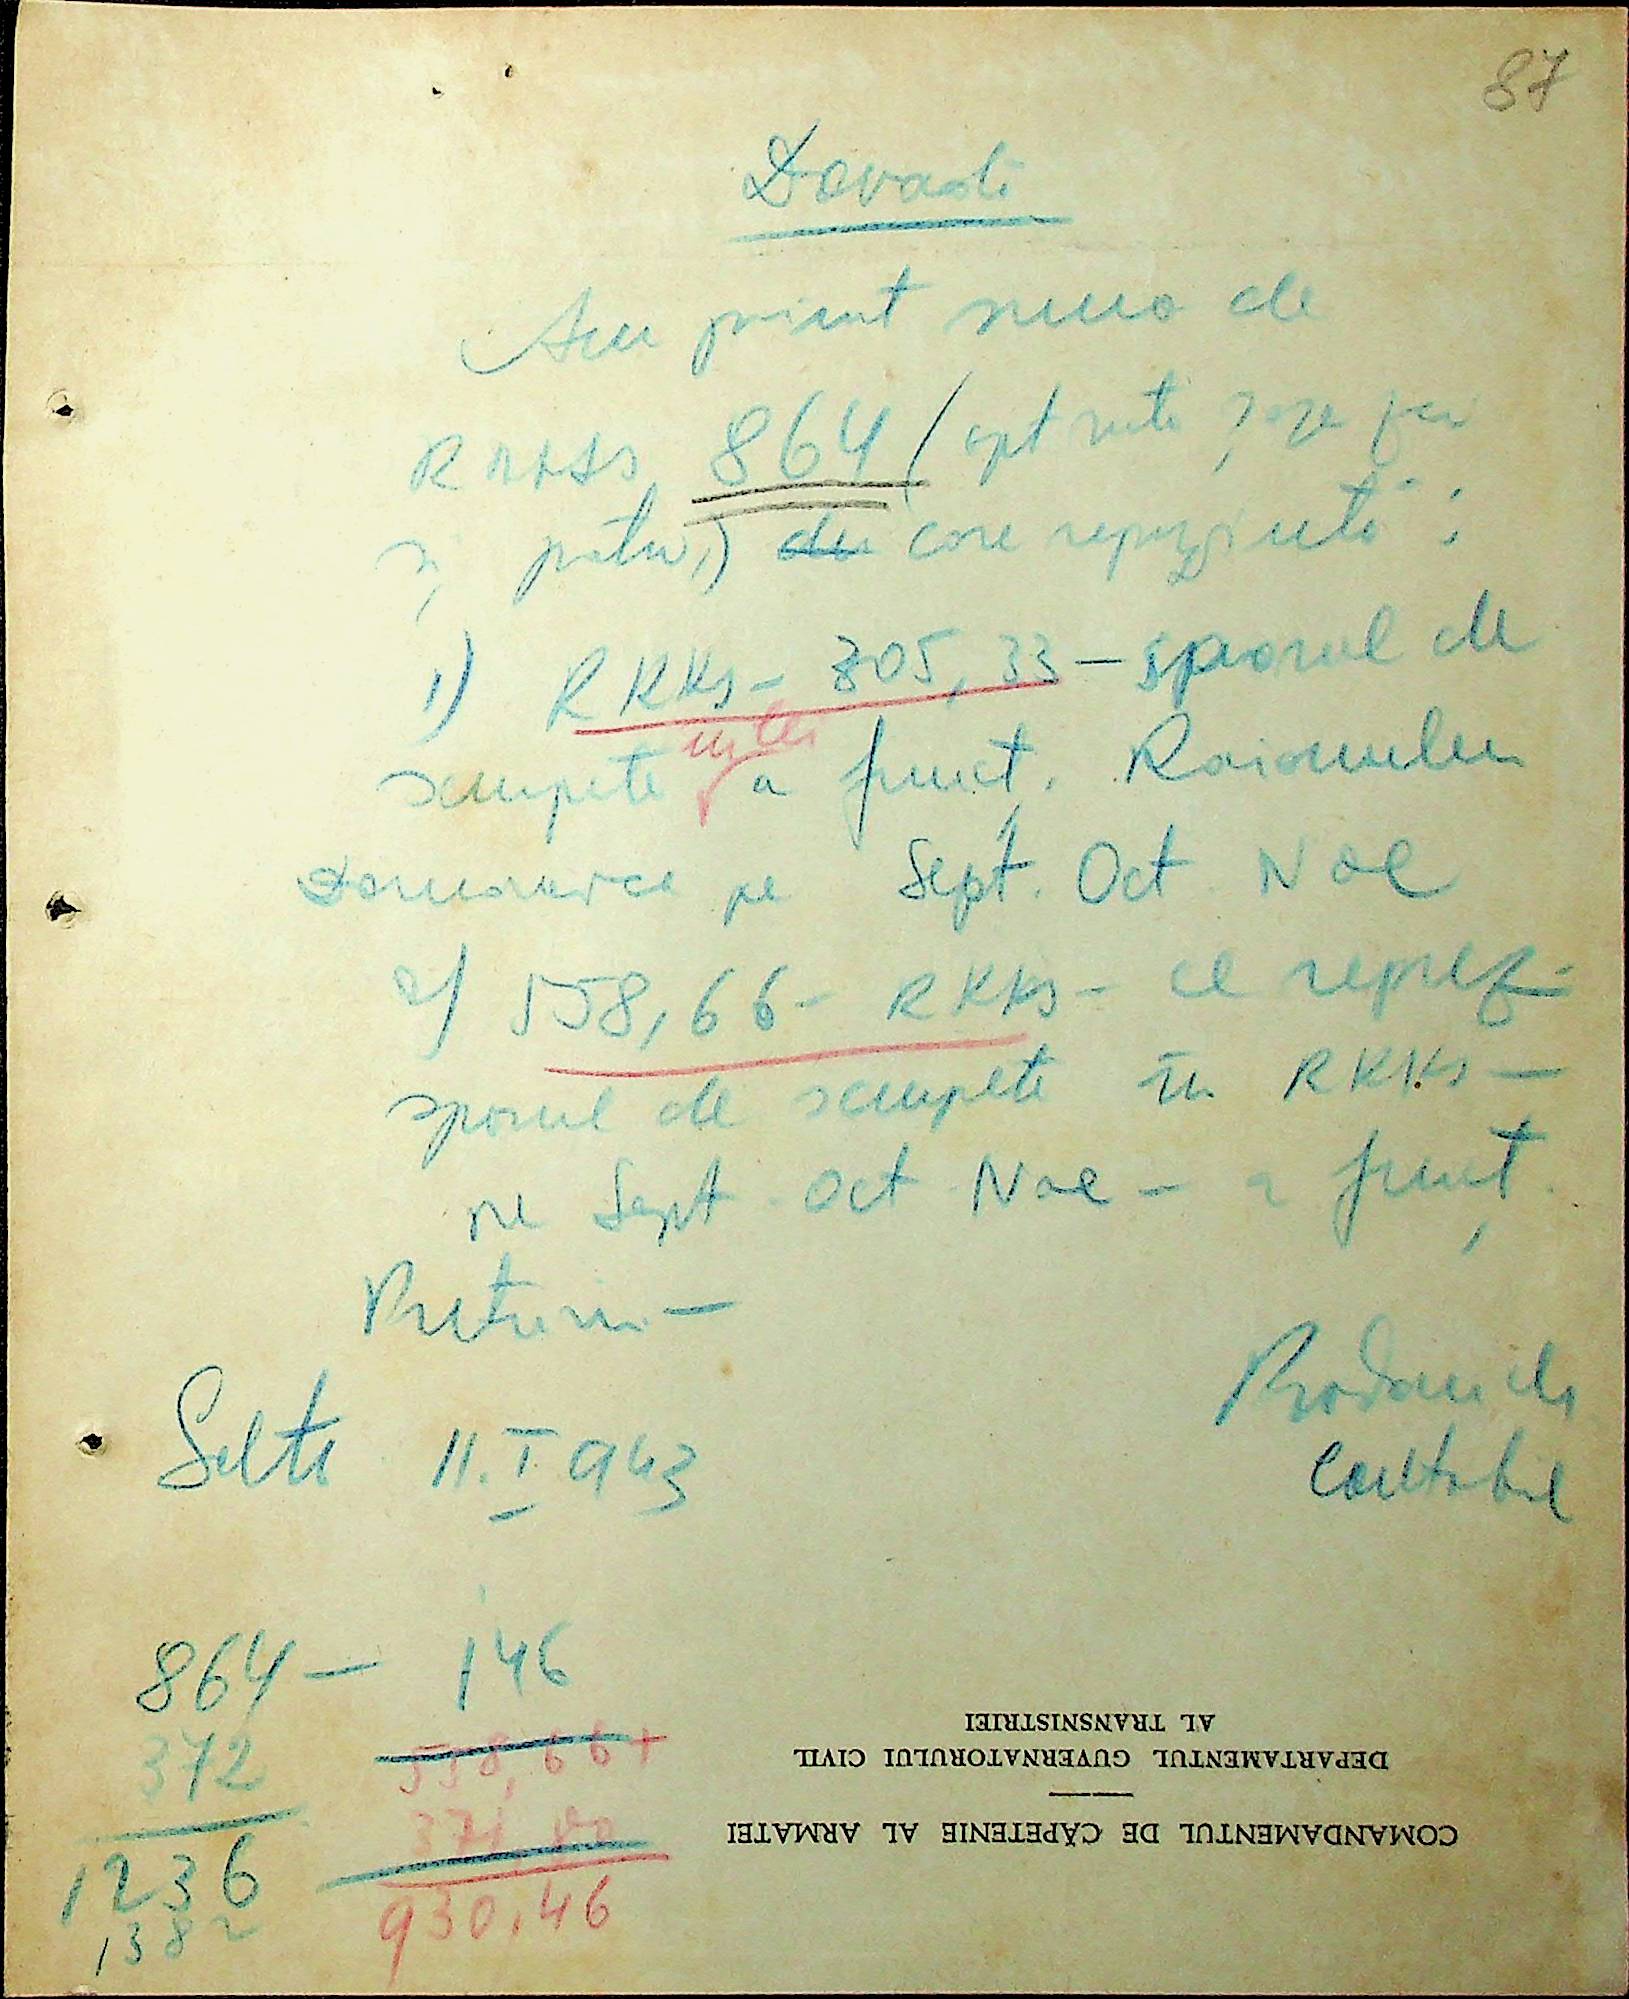 87
Dovadă
Am primit suma de
RKKS 864 (opt sute șase zeci
și patru) care reprezintă:
1) RKKs- 305,33 - sporul de
in lei
scumpete a funcț. Raionului
pe Sept. Oct. Noe
2) 558,66- RKKs- ce reprez.
sporul de scumpete în RKKs-
pe Sept. Oct Noe - a funcț.
Preturii -
Contabil
11.I.943
864 - 146
372 558,66+
1236 930,46
1382
COMANDAMENTUL DE CĂPETENIE AL ARMATEI
DEPARTAMENTUL GUVERNATORULUI CIVIL
AL TRANSNISTRIEI